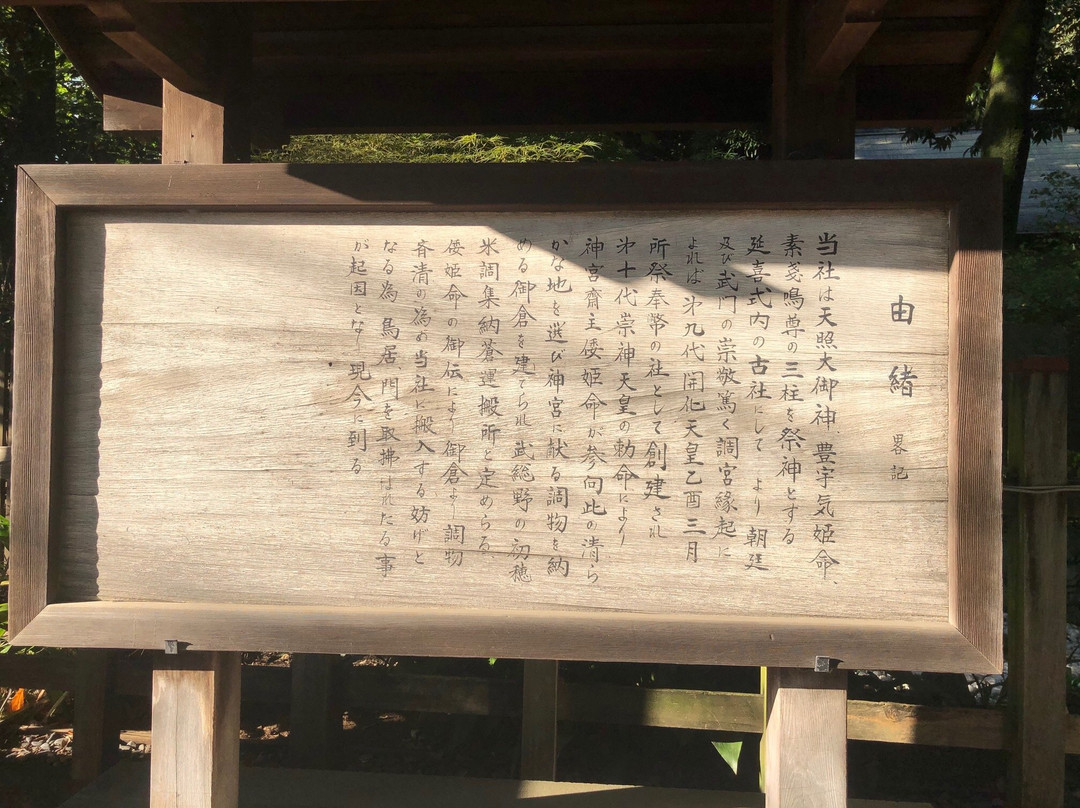 由緒 畧記
当社は天照大御神 豊宇気姫命、
素盞嗚尊の三柱を祭神とする
延喜式内の古社にして より 朝廷
及び武門の崇敬篤く調宮縁起に
よれば 第九代 開化天皇乙酉三月
所祭奉幣の社として創建され
第十代崇神天皇の勅命により
神宮齋主倭姫命が参向此の清ら
かな地を選び神宮に献る調物を納
める御倉を建てられ武総野の初穂
米調集納蒼運搬所と定めらる
倭姫命の御伝により御倉より調物
斉清の為め当社に搬入する妨げと
なる為 鳥居、門を取拂はれたる事
が起因となり現今に到る